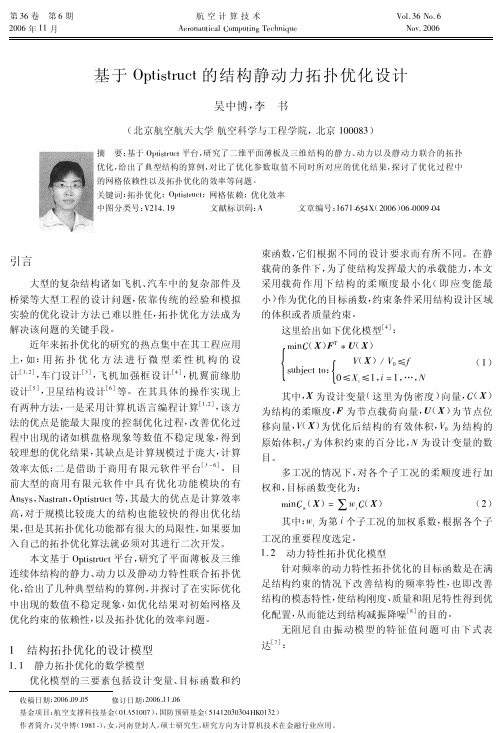 第36卷 第6期
2006 年 11 月
航 空 计 算 技 术
Aeronautical Computing Technique
Vol. 36 No. 6
Nov. 2006
基于 Optistruct 的结构静动力拓扑优化设计
吴中博,李 书
(北京航空航天大学 航空科学与工程学院,北京 100083)
摘 要:基于 Optistruct 平台,研究了二维平面薄板及三维结构的静力、动力以及静动力联合的拓扑
优化,给出了典型结构的算例,对比了优化参数取值不同时所对应的优化结果,探讨了优化过程中
的网格依赖性以及拓扑优化的效率等问题。
关键词:拓扑优化; Optistruct; 网格依赖; 优化效率
中图分类号:V214. 19 文献标识码:A 文章编号:1671-654X(2006)06-0009-04
引言
大型的复杂结构诸如飞机、汽车中的复杂部件及
桥梁等大型工程的设计问题,依靠传统的经验和模拟
实验的优化设计方法已难以胜任,拓扑优化方法成为
解决该问题的关键手段。
近年来拓扑优化的研究的热点集中在其工程应用
上,如:用拓扑优化方法进行微型柔性机构的设
计[1,2],车门设计[3],飞机加强框设计[4],机翼前缘肋
设计[5],卫星结构设计[6]等。在其具体的操作实现上
有两种方法,一是采用计算机语言编程计算[1,2],该方
法的优点是能最大限度的控制优化过程,改善优化过
程中出现的诸如棋盘格现象等数值不稳定现象,得到
较理想的优化结果,其缺点是计算规模过于庞大,计算
效率太低;二是借助于商用有限元软件平台[3-6]。目
前大型的商用有限元软件中具有优化功能模块的有
Ansys, Nastran, Optistruct 等,其最大的优点是计算效率
高,对于规模比较庞大的结构也能较快的得出优化结
果,但是其拓扑优化功能都有很大的局限性,如果要加
入自己的拓扑优化算法就必须对其进行二次开发。
本文基于 Optistruct 平台,研究了平面薄板及三维
连续体结构的静力、动力以及静动力特性联合拓扑优
化,给出了几种典型结构的算例,并探讨了在实际优化
中出现的数值不稳定现象,如优化结果对初始网格及
优化约束的依赖性,以及拓扑优化的效率问题。
1 结构拓扑优化的设计模型
1. 1 静力拓扑优化的数学模型
优化模型的三要素包括设计变量、目标函数和约
束函数,它们根据不同的设计要求而有所不同。在静
载荷的条件下,为了使结构发挥最大的承载能力,本文
采用载荷作用下结构的柔顺度最小化(即应变能最
小)作为优化的目标函数,约束条件采用结构设计区域
的体积或者质量约束。
这里给出如下优化模型[4]:
minC(X)F^T * U(X)
stbject to: V(X) / V0 ≤f
0≤Xi≤1,i = 1,…,N (1)
其中,X 为设计变量(这里为伪密度)向量,C(X)
为结构的柔顺度,F 为节点载荷向量,U(X)为节点位
移向量,V(X)为优化后结构的有效体积,V0 为结构的
原始体积,f 为体积约束的百分比,N 为设计变量的数
目。
多工况的情况下,对各个子工况的柔顺度进行加
权和,目标函数变化为:
minCw(X) = ∑wiC(X) (2)
其中:wi 为第 i 个子工况的加权系数,根据各个子
工况的重要程度选定。
1. 2 动力特性拓扑优化模型
针对频率的动力特性拓扑优化的目标函数是在满
足结构约束的情况下改善结构的频率特性,也即改善
结构的模态特性,使结构刚度、质量和阻尼特性得到优
化配置,从而能达到结构减振降噪[8]的目的。
无阻尼自由振动模型的特征值问题可由下式表
达[7]:
收稿日期:2006-09-05 修订日期:2006-11-06
基金项目:航空支撑科技基金(01A51007),国防预研基金(51412030304HK0132)
作者简介:吴中博(1981-),女,河南登封人,硕士研究生,研究方向为计算机技术在金融行业应用。